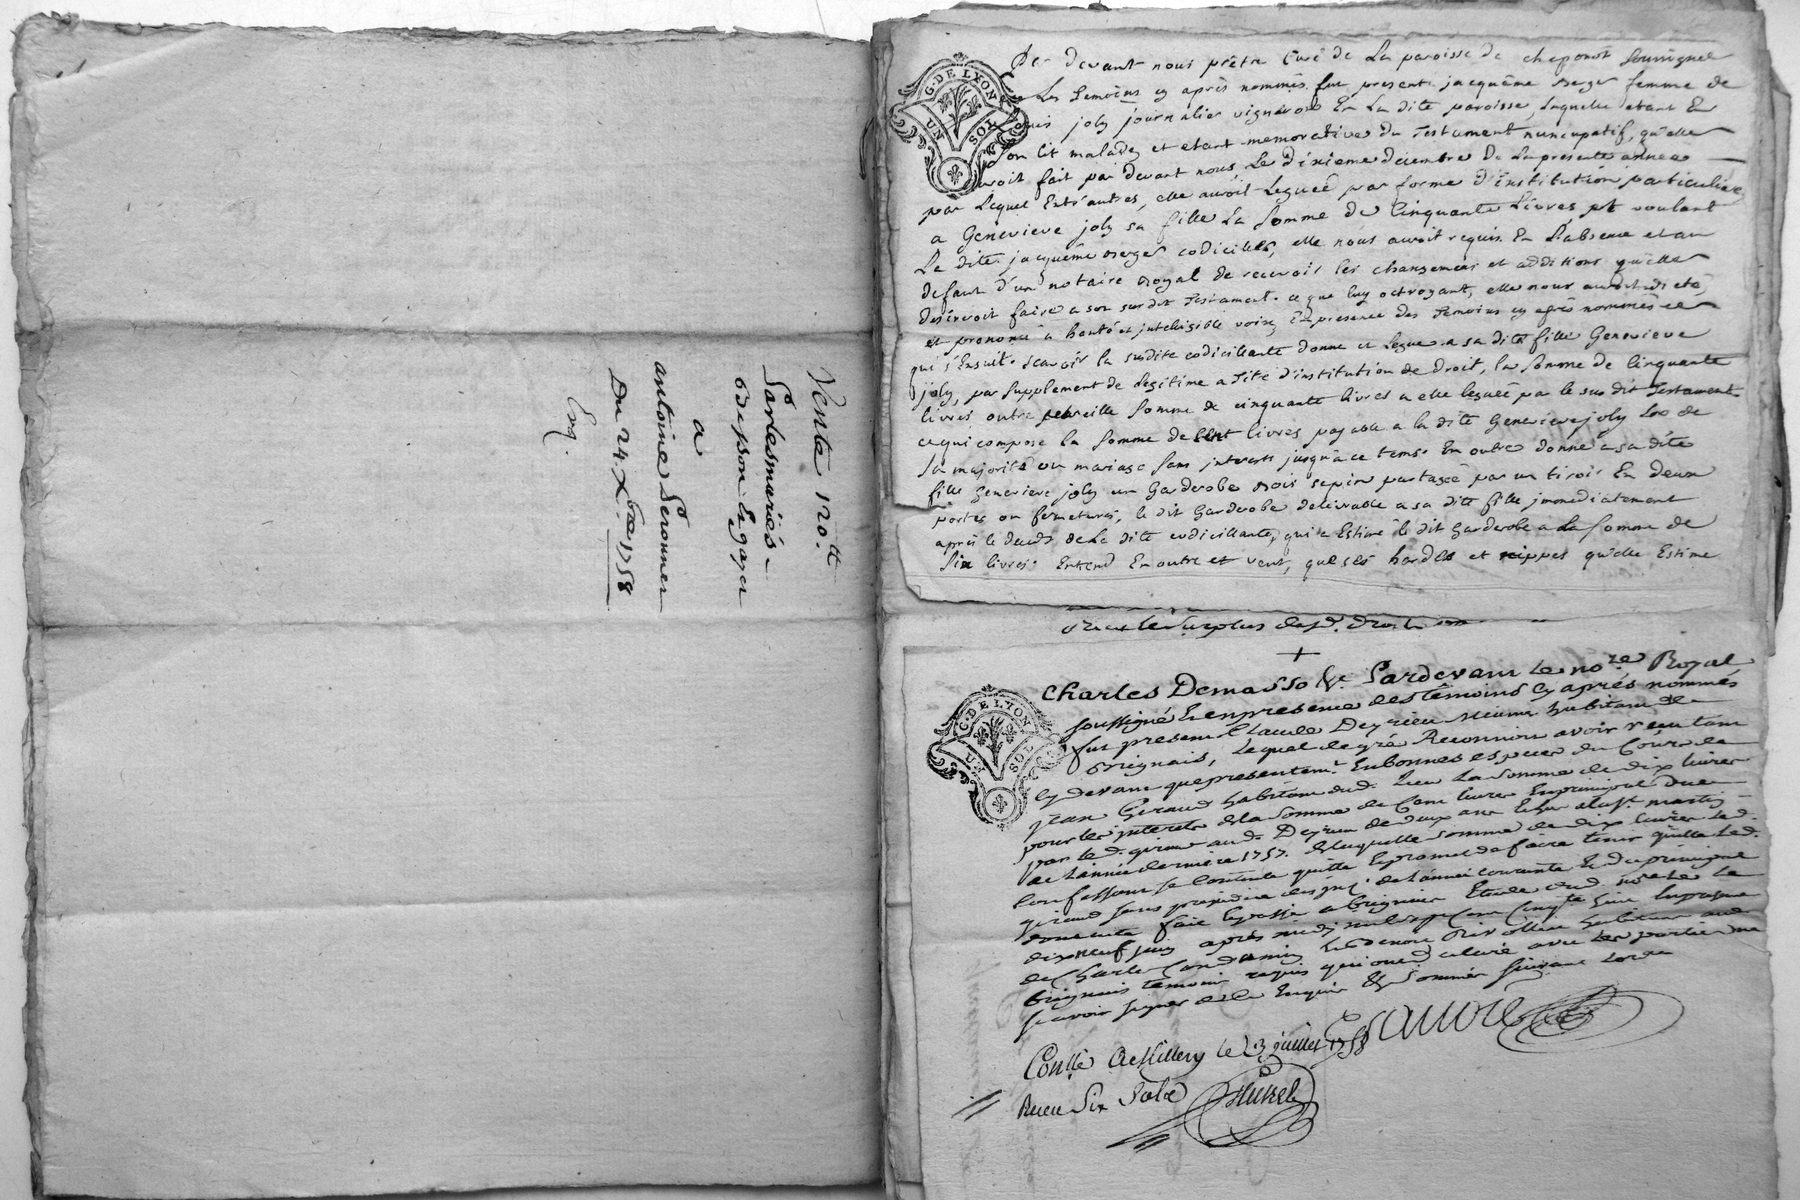 Vente 120 ₶
Par les mariés
odepson Legazer
a
antoine Peronnet
Du 24 Xbre 1758
Enq.
G. DE LYON
UN SOL
Par devant nous prêtre Curé de La paroisse de chaponost soussigné
Les Temoins cy après nommés fut present jacquême Berger femme de
joly journalier vigneron En La dite paroisse, Laquelle etant En
son Lit malade, et etant memorative du Testament nuncupatif, qu'elle
avoit fait par devant nous, Le dixieme decembre de La presente annee
par Lequel Entr'autres, elle avoit Leguée par forme d'Institution particuliere
a Genevieve joly sa fille La somme de Cinquante Livres et voulant
La dite jacquême Berger codiciller, elle nous auroit requis En L'absence et au
defaut d'un notaire Royal de recevoir les changemens et additions qu'elle
desireroit faire a son susdit Testament. ce que luy octroyant, elle nous auroit dicté
et prononcé a haute et intelligible voix, En presence des Temoins cy après nommés ce
qui s'Ensuit. scavoir la susdite codicillante donne et Legue a sa dite fille Genevieve
joly, par supplement de Legitime a Titre d'institution de droit, la somme de Cinquante
livres outre pareille somme de cinquante livres a elle leguée par le sus dit Testament
ce qui compose la somme de Cent livres payable a la dite Genevieve joly Lors de
sa majorité ou mariage sans interests jusqu'a ce tems. En outre donne a sa dite
fille Genevieve joly un Garderobe Bois sapin partagée par un tiroir En deux
portes ou fermetures, le dit Garderobe delivrable a sa dite fille immediatement
après le deces de La dite codicillante, qui a Estimé le dit Garderobe a La somme de
Six livres. Entend En outre et veut, que ses hardes et nippes qu'elle Estime
+
G. DE LYON
UN SOL
Charles Demasso &c. Pardevant Le no.re Royal
soussigné Et en presence des témoins cy après nommés
fut present Claude Deyrieu Meunier habitant de
Brignais, Lequel de gré Reconnoit avoir reçu tant
cy devant que presentem.t En bonnes especes du Cours de
jean Giraud habitant dud. Lieu La somme de dix livres
pour les interets de la somme de Cent livres En principal Due
par le d. giraud au d. Deyrieu de deux ans Echus a la st. martin
de L'année derniere 1757. de laquelle somme de dix livres Led.
Confessant se Contente quitte Et promet de faire tenir quitte Led.
giraud sans prejudice des int. de L'année courante Et du principal
dont acte fait Et passé a Brignais Etude dud. no.re Le
dix neuf juin après midy mil sept Cent Cinq.te huit En presence
de Charle Condamin Et Benoit Rivollier habitants aud.
Brignais temoins requis qui ont declaré avec Les parties ne
scavoir signer de ce Enquis Et sommés suivant Lord.ce
Con.llé a Millery le 3 juillet 1758
Reçu Six Sols